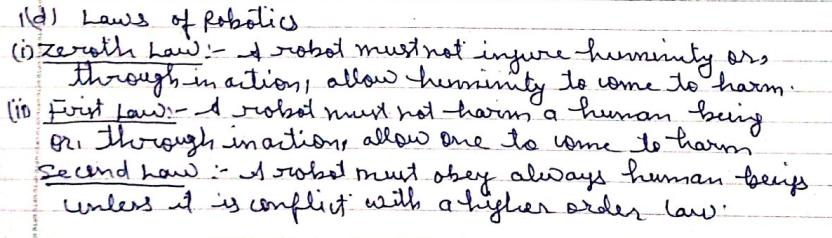 1(d) Laws of Robotics
(i) Zeroth Law:- A robot must not injure humminity or,
through in action, allow humminity to come to harm.
(ii) First Law:- A robot must not harm a human being
or, through inaction, allow one to come to harm
Second Law :- A robot must obey always human beings
unless it is conflict with a higher order law.